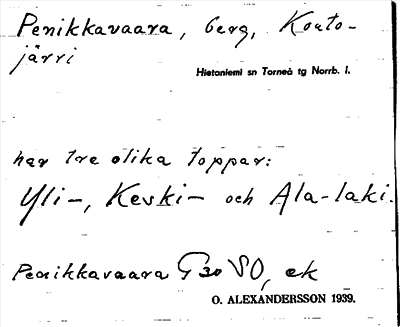 Penikkavaara, berg, Kouto-
järvi
Hietaniemi sn Torneå tg Norrb. l.
har tre olika toppar:
Yli-, Keski- och Ala-laki.
Penikkavaara G 30 VO, ek
O. ALEXANDERSSON 1939.